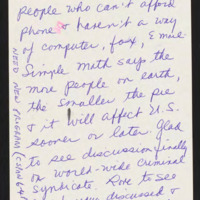 people who can't afford
phone or haven't a way
of computer, fox, E mail
Simple math says the
more people on earth,
the smaller the pie
& it will affect U.S.
sooner or later. Glad
to see discussion finally
on World-wide criminal
syndicate. Love to See
discussed &
NEED NEW PROGRAM